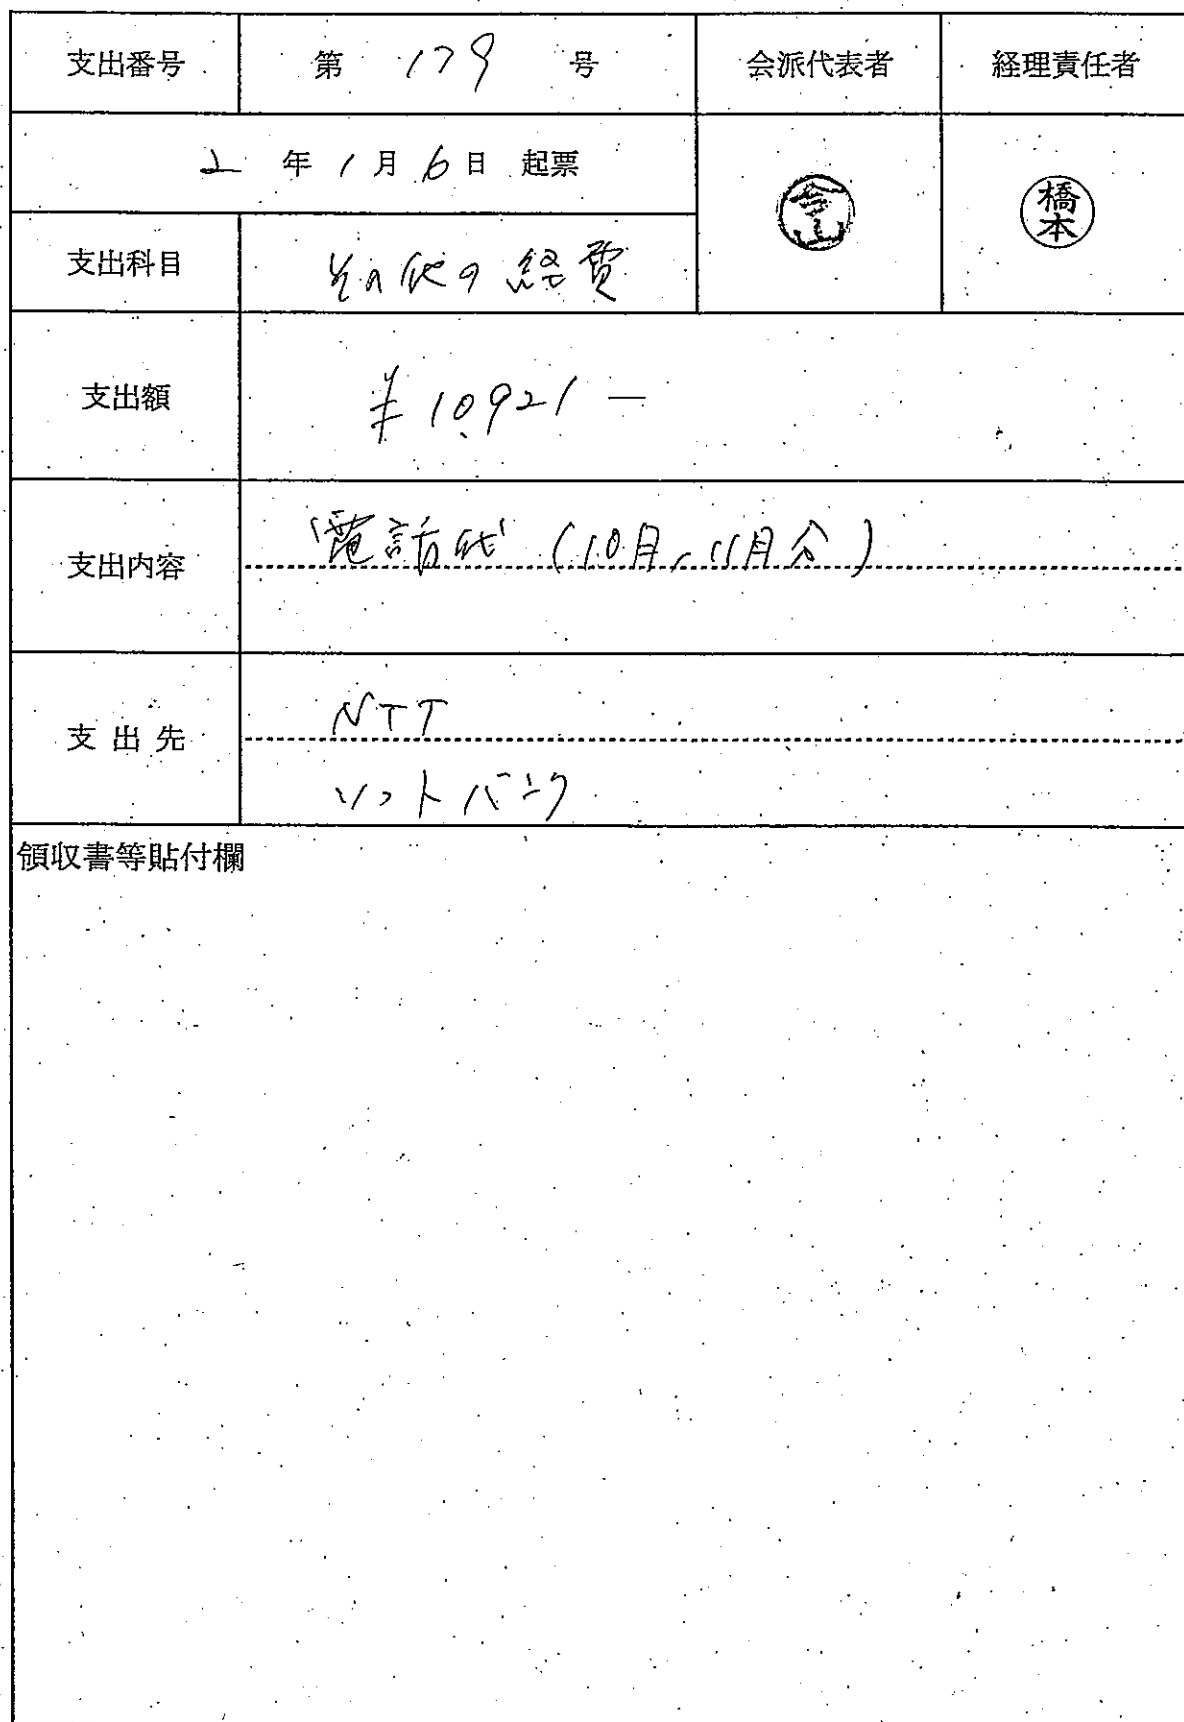 支出番号 第 179 号 会派代表者 経理責任者
2 年 1 月 6 日 起票
橋本
支出科目 その他の経費
支出額 ¥10,921－
支出内容 電話代 (10月, 11月分)
支出先 NTT
ソフトバンク
領収書等貼付欄